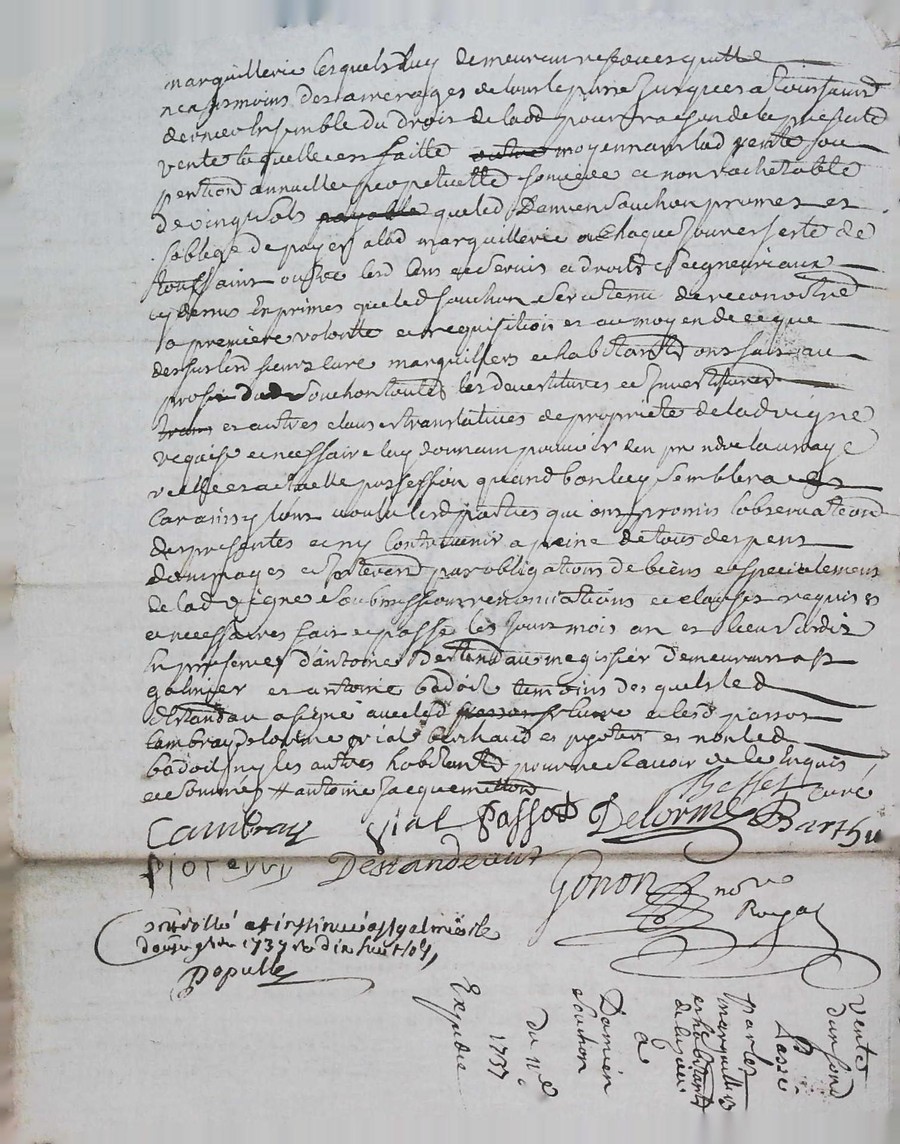 marquillerie lesquels luy demeurent reservés quitte
neasmoins des arrerages de tout le passé jusques a toussaint
dernier ensemble du droit de lad pour raison de la presente
vente laquelle est faitte outre moyennant lad rente ou
pention annuelle perpetuelle fonciere et non rachetable
de cinq sols payable que led Damien Souchon promet et
soblige de payer a lad marquillerie a chaque jour et feste de
toussaint outre led cens et servis et droits seigneuriaux
cy dessus exprimes que led Souchon sera tenu de reconoistre
a premiere volonté et requisition et au moyen de ce que
dessus led sieurs curé marquilliers et habitants ont fait au
profit dud Souchon toutes les devestitures et investitures
et autres clauses translatives de proprieté de lad vigne
requise et necessaire luy donnant pouvoir den prendre la vraye
reelle et actuelle possession quand bon luy semblera et
car ainsy lont voulu led parties qui ont promis lobservation
des presentes et ny contrevenir a peine de tous despens
dommages et par obligations de biens et specialement
de lad vigne soubmissions renonciations et clauses requises
et necessaires fait et passé les jour mois an et lieu susdit
en presence d'antoine Destandau megissier demeurant a st
galmier et antoine badoil temoins desquels led
destandau a signé avec led sr curé et led passot
Cambray delorme vial berthaud et et non led
badoil ny les autres habitants pour ne scavoir de ce enquis
et sommés # antoine Jacquemetton
Besset curé
Cambray Vial Passot Delorme Barthe
Destandeaut
Gonon no.re
Royal
Controllé et insinué a st galmier le
douze 1737 re dix huit sols
Populle
Vente
dun fond
Passée
par les
marguilliers
et habitants
de
a
Damien
Souchon
du 11e
1737
Expediée